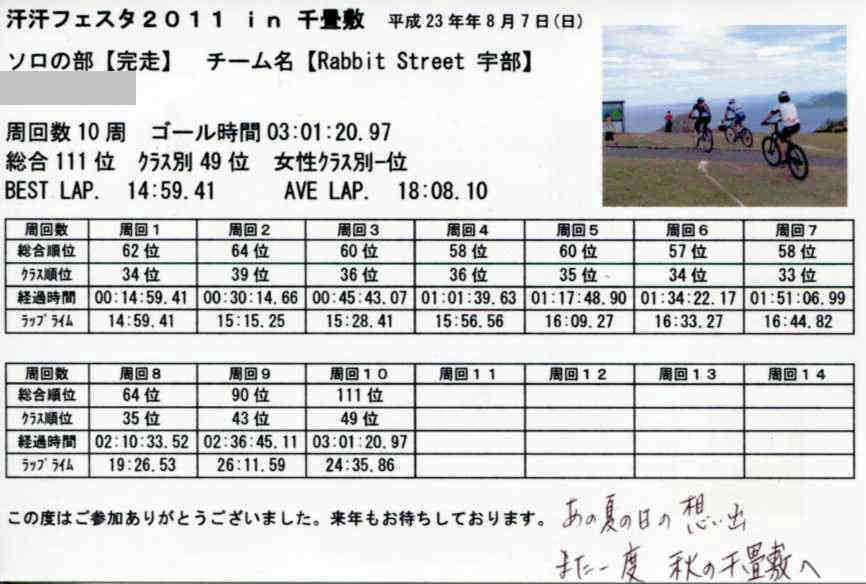 汗汗フェスタ2011 in 千畳敷 平成23年年8月7日(日)
ソロの部【完走】 チーム名【Rabbit Street 宇部】
周回数10周 ゴール時間03:01:20.97
総合111位 クラス別49位 女性クラス別-位
BEST LAP. 14:59.41 AVE LAP. 18:08.10
周回数 周回1 周回2 周回3 周回4 周回5 周回6 周回7
総合順位 62位 64位 60位 58位 60位 57位 58位
クラス順位 34位 39位 36位 36位 35位 34位 33位
経過時間 00:14:59.41 00:30:14.66 00:45:43.07 01:01:39.63 01:17:48.90 01:34:22.17 01:51:06.99
ラップタイム 14:59.41 15:15.25 15:28.41 15:56.56 16:09.27 16:33.27 16:44.82
周回数 周回8 周回9 周回10 周回11 周回12 周回13 周回14
総合順位 64位 90位 111位
クラス順位 35位 43位 49位
経過時間 02:10:33.52 02:36:45.11 03:01:20.97
ラップタイム 19:26.53 26:11.59 24:35.86
この度はご参加ありがとうございました。来年もお待ちしております。
あの夏の日の想い出
また一度 秋の千畳敷へ